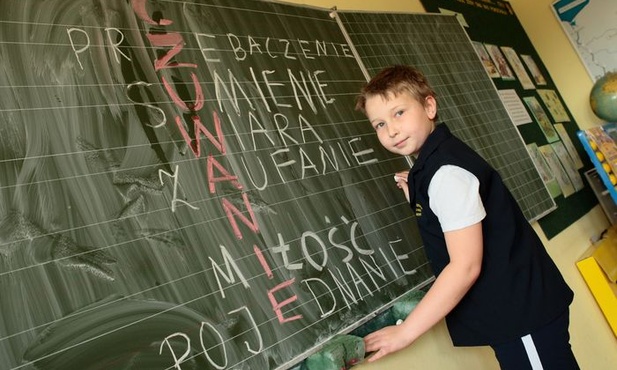 C
PRZEBACZENIE
SUMIENIE
WIARA
ZAUFANIE
N
MIŁOŚĆ
POJEDNANIE